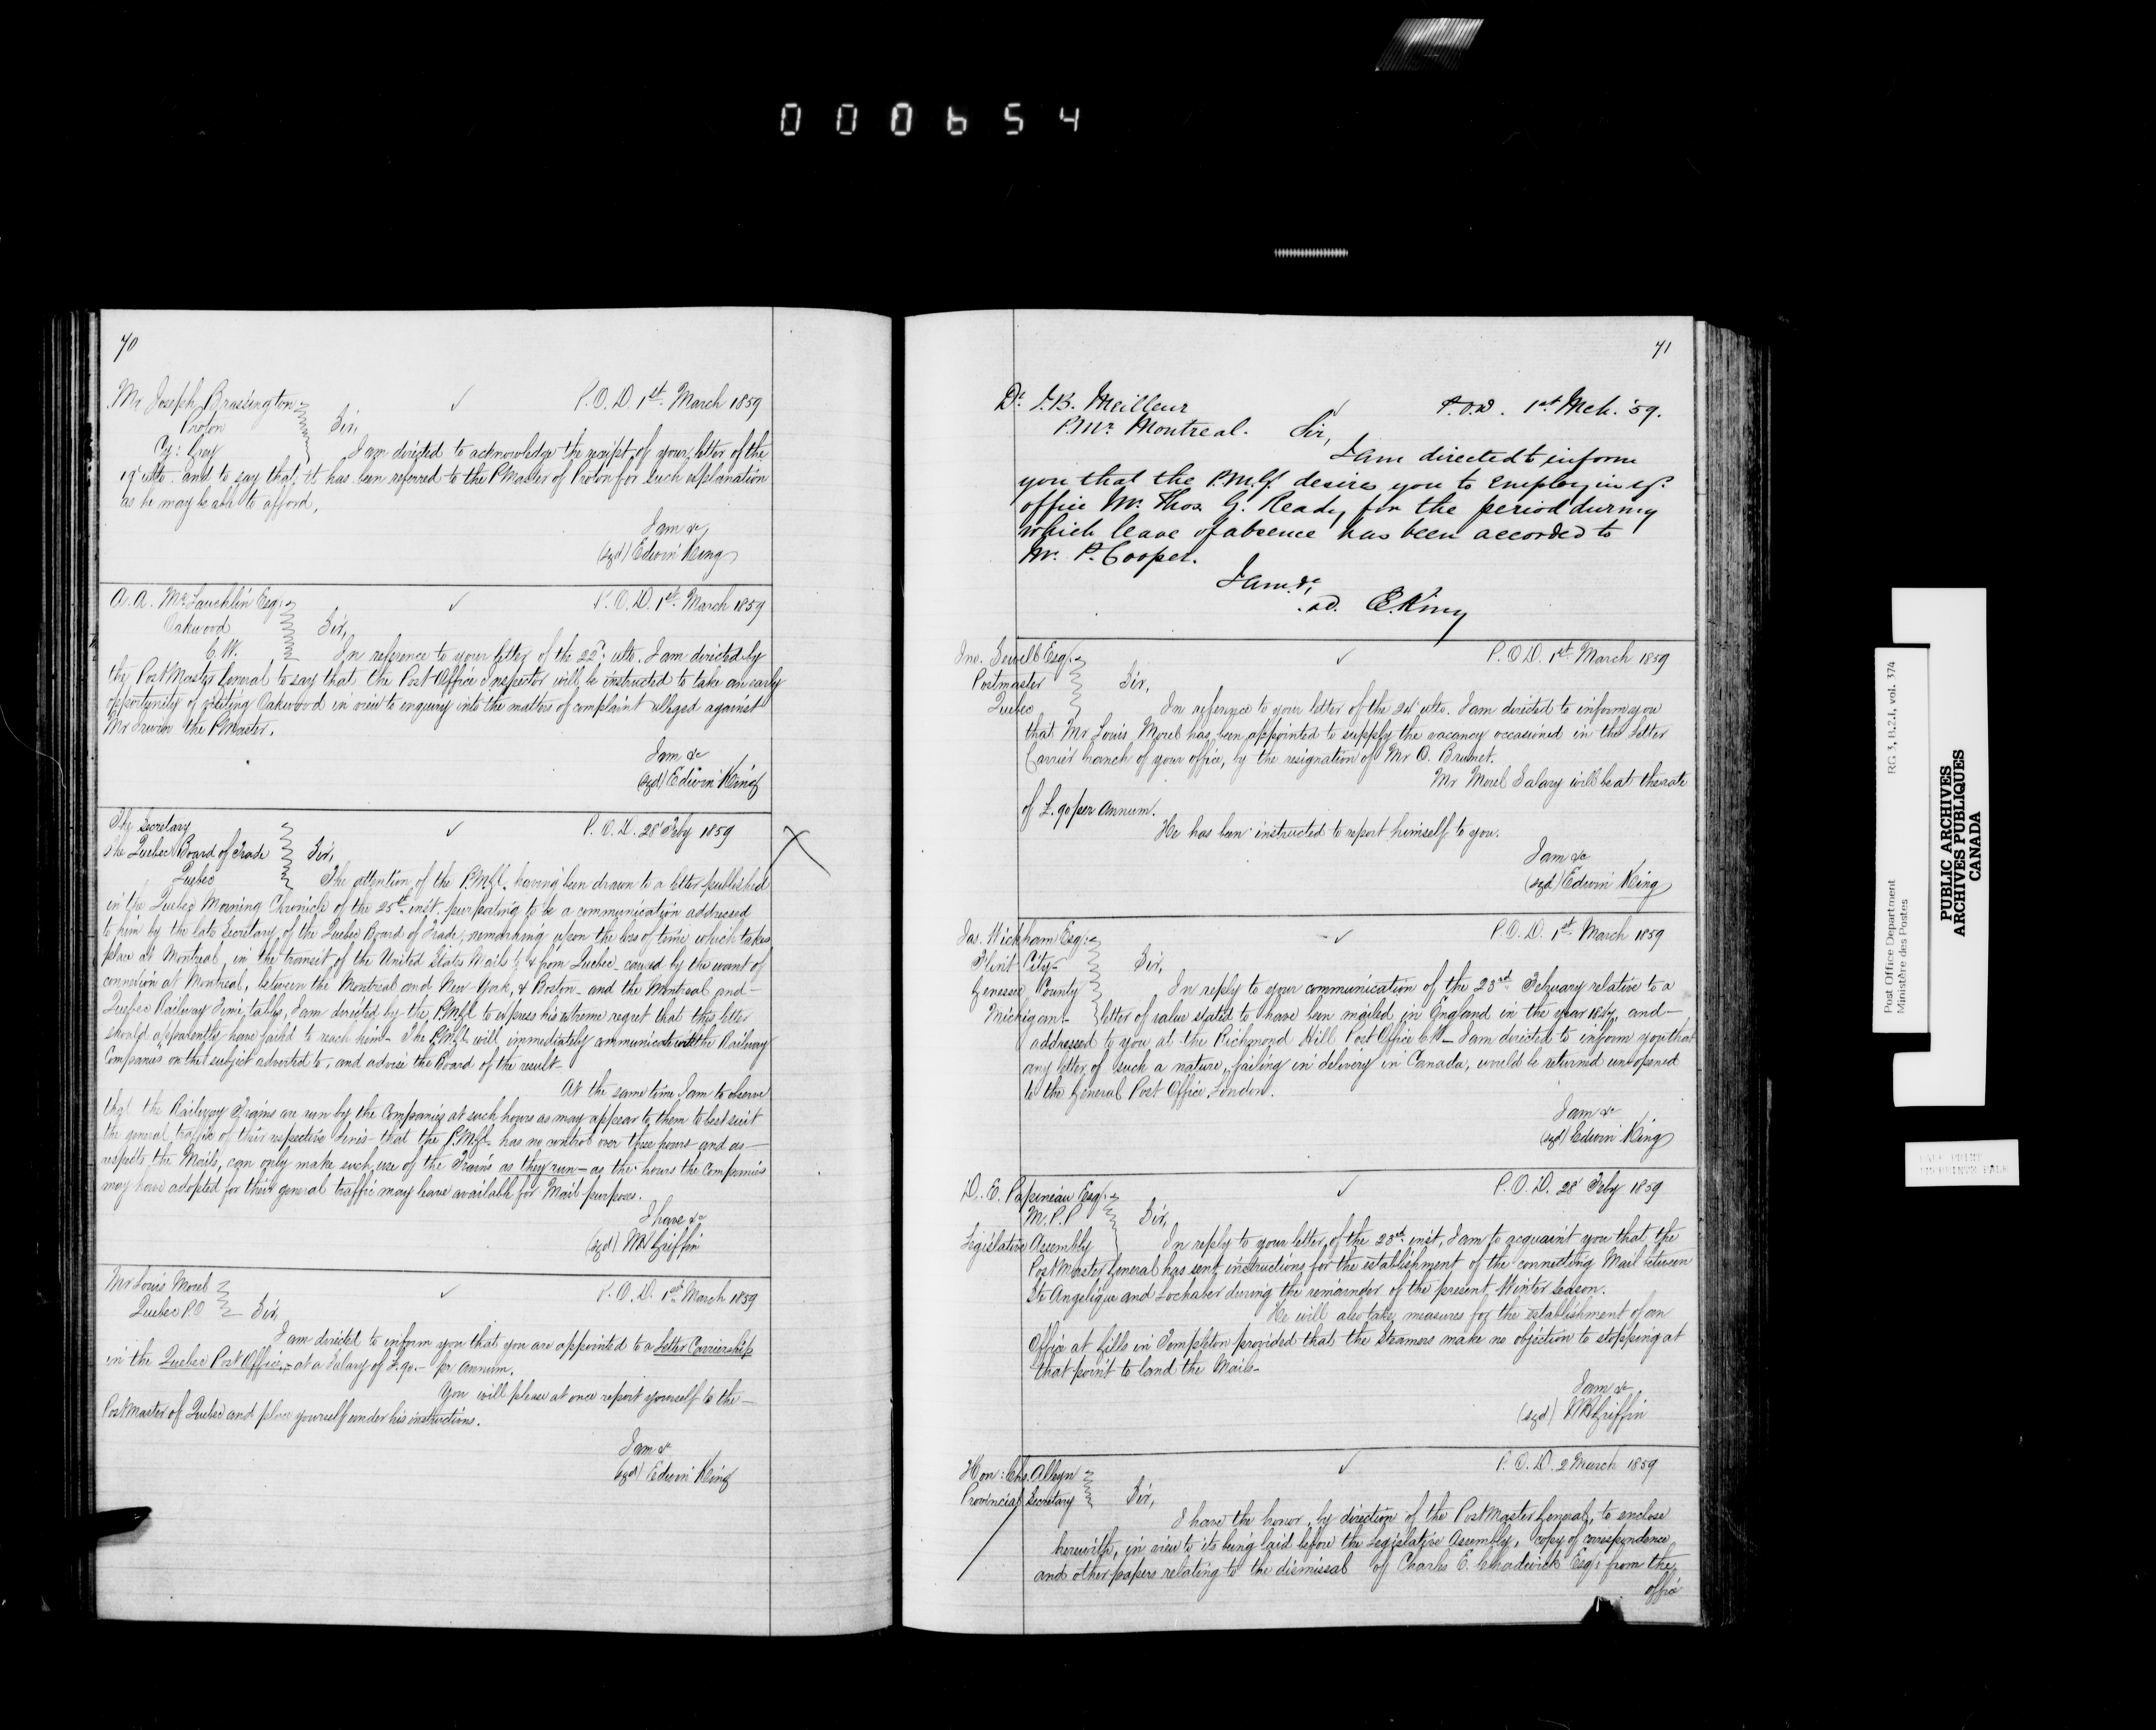 000654
70
Mr Joseph Brassington
Proton
Cy: Grey
P.O.D. 1st March 1859
Sir,
I am directed to acknowledge the receipt of your letter of the
19' ulto. and to say that it has been referred to the PMaster of Proton for such explanation
as he may be able to afford.
I am &c
(sgd) Edwin King
A. A. McLauchlin Esq.
Oakwood
C.W.
P.O.D. 1st March 1859
Sir,
In reference to your letter of the 22d. ulto. I am directed by
the Post Master General to say that the Post Office Inspector will be instructed to take an early
opportunity of visiting Oakwood in view to enquiry into the matters of complaint alleged against
Mr Irwin the PMaster.
I am &c
(sgd) Edwin King
The Secretary
The Quebec Board of Trade
Quebec
P.O.D. 28' Feby 1859
Sir,
The attention of the P.M.Gl. having been drawn to a letter published
in the Quebec Morning Chronicle of the 25th inst. purporting to be a communication addressed
to him by the late Secretary of the Quebec Board of Trade, remarking upon the loss of time which takes
place at Montreal, in the transit of the United States Mails to & from Quebec - caused by the want of
connexion at Montreal, between the Montreal and New-York, & Boston - and the Montreal and -
Quebec Railway Time tables, I am directed by the P.M.Gl. to express his extreme regret that this letter
should apparently have failed to reach him - The P.M.Gl. will immediately communicate with the Railway
Companies on the subject adverted to, and advise the Board of the result.
At the same time I am to observe
that the Railway Trains are run by the Companies at such hours as may appear to them to best suit
the general traffic of their respective Lines - that the P.M.Gl. has no control over these hours - and as -
respects the Mails, can only make such use of the Trains as they run - as the hours the Companies
may have adopted for their general traffic may leave available for Mail purposes.
I have &c
(sgd) WH Griffin
Mr Louis Morel
Quebec P.O
P.O.D. 1st March 1859
Sir,
I am directed to inform you that you are appointed to a Letter Carriership
in the Quebec Post Office, - at a Salary of £.90. - pr annum.
You will please at once report yourself to the -
PostMaster of Quebec and place yourself under his instructions.
I am &c
(sgd) Edwin King
71
Dr. J.B. Meilleur
P.Mr. Montreal.
P.O.D. 1st Mch. '59.
Sir,
I am directed to inform
you that the P.M.G. desires you to employ in yr.
office Mr. Thos. G. Ready for the period during
which leave of absence has been accorded to
Mr. P. Cooper.
I am &c,
sd. E. King
Jno. Sewell Esq.
Postmaster
Quebec
P.O.D. 1st March 1859
Sir,
In reference to your letter of the 24' ulto. I am directed to inform you
that Mr Louis Morel has been appointed to supply the vacancy occasioned in the Letter
Carrier branch of your office, by the resignation of Mr O. Brunet.
Mr Morel Salary will be at the rate
of £.90 per Annum.
He has been instructed to report himself to you.
I am &c
(sgd) Edwin King
Jas. Wickham Esq.
Flint City -
Genessee County
Michigan -
P.O.D. 1st March 1859
Sir,
In reply to your communication of the 23rd February relative to a
letter of value stated to have been mailed in England in the year and -
addressed to you at the Richmond Hill Post Office C.W - I am directed to inform you that
any letter of such a nature, failing in delivery in Canada, would be returned unopened
to the General Post Office, London.
I am &c
(sgd) Edwin King
D. E. Papineau Esq.
M.P.P
Legislative Assembly
P.O.D. 28' Feby 1859
Sir,
In reply to your letter of the 23rd inst, I am to acquaint you that the
Post Master General has sent instructions for the establishment of the connecting Mail between
Ste Angelique and Lochaber during the remainder of the present Winter Season.
He will also take measures for the establishment of an
Office at Gills in Templeton provided that the Steamers make no objection to stopping at
that point to land the Mails -
I am &c
(sgd) WH Griffin
Hon: Chs. Alleyn
Provincial Secretary
P.O.D. 2 March 1859
Sir,
I have the honor, by direction of the Post Master General, to enclose
herewith, in view to its being laid before the Legislative Assembly, copy of correspondence
and other papers relating to the dismissal of Charles E. Chadwick Esq. from the
office
Post Office Department
Ministère des Postes
RG 3, B.2.1, vol. 374
PUBLIC ARCHIVES
ARCHIVES PUBLIQUES
CANADA